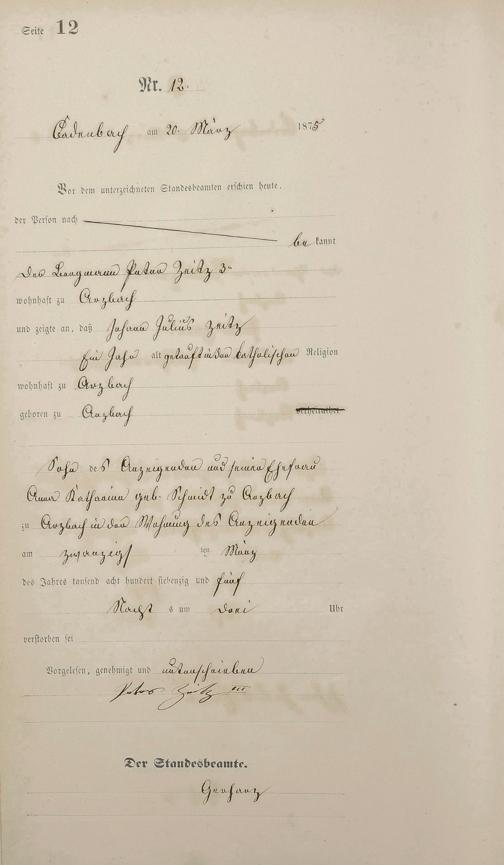 Seite 12
Nr. 12.
Cadenbach am 20. März 1875
Vor dem unterzeichneten Standesbeamten erschien heute,
der Person nach
be kannt
der Bergmann Peter Zeitz 3.
wohnhaft zu Arzbach
und zeigte an, daß Johann Julius Zeitz
Ein Jahr alt getauft in der katholischen Religion
wohnhaft zu Arzbach
geboren zu Arzbach
Sohn des Anzeigenden und seiner Ehefrau
Anna Katharina geb. Schmidt zu Arzbach
zu Arzbach in der Wohnung des Anzeigenden
am zwanzigs ten März
des Jahres tausend acht hundert siebenzig und fünf
Nacht s um drei Uhr
verstorben sei
Vorgelesen, genehmigt und unterschrieben
Peter Zeitz III
Der Standesbeamte.
Gerharz